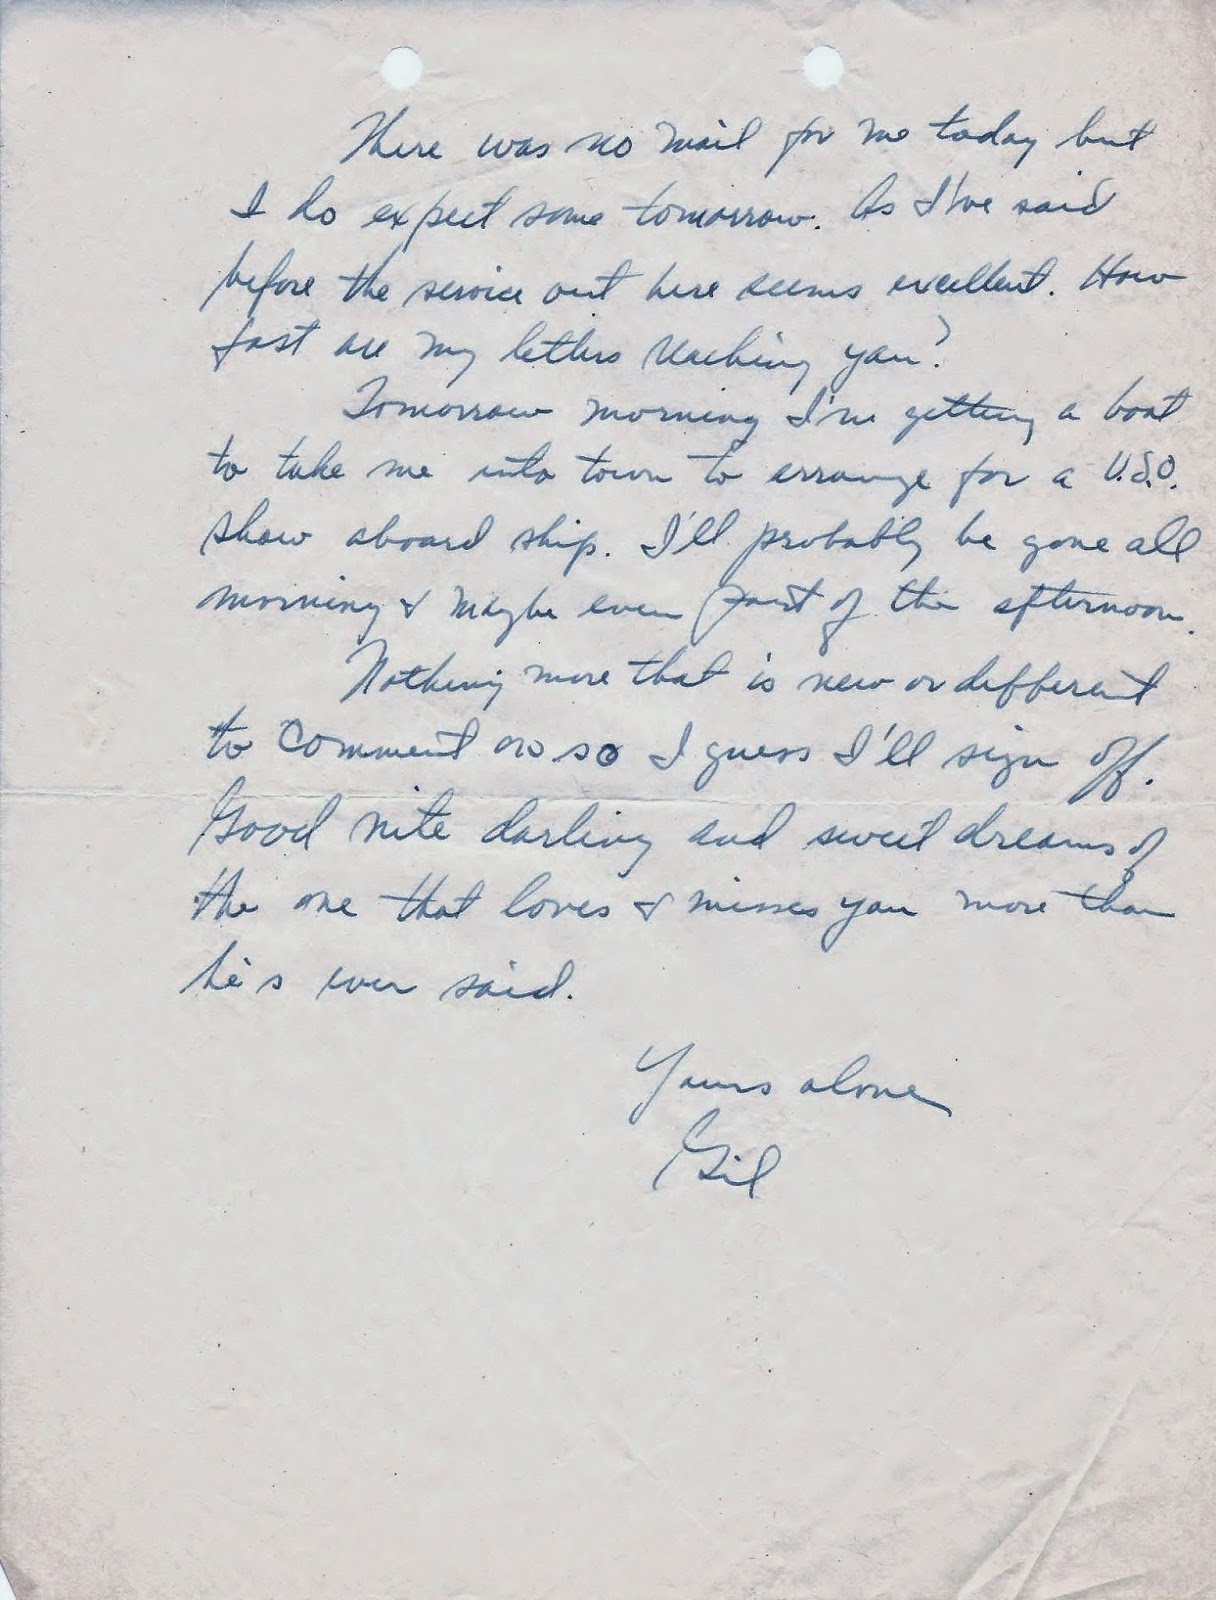 There was no mail for me today but
I do expect some tomorrow. As I've said
before the service out here seems excellent. How
fast are my letters reaching you?
Tomorrow morning I'm getting a boat
to take me into town to arrange for a U.S.O.
show aboard ship. I'll probably be gone all
morning & maybe even part of the afternoon.
Nothing more that is new or different
to comment on so I guess I'll sign off.
Good nite darling and sweet dreams of
the one that loves & misses you more than
he's ever said.
Yours alone
Gil